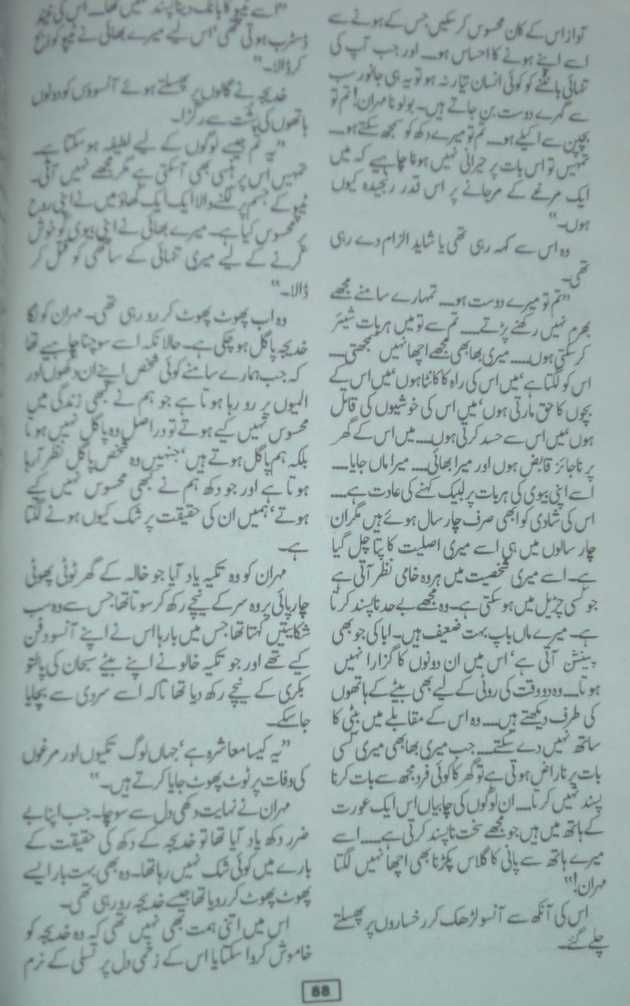 آواز اس کے کان محسوس کر سکیں جس کے ہونے سے
اسے اپنے ہونے کا احساس ہو۔۔۔ اور جب آپ کی
تنہائی بانٹنے کو کوئی انسان تیار نہ ہو تو یہ ہی جانور سب
سے گہرے دوست بن جاتے ہیں۔ بولو نا مہران! تم تو
بچپن سے اکیلے ہو۔۔۔ تم تو میرے دکھ کو سمجھ سکتے ہو۔۔۔
تمہیں تو اس بات پر حیرانی نہیں ہونا چاہیے کہ میں
ایک مرغے کے مر جانے پر اس قدر رنجیدہ کیوں
ہوں۔"
وہ اس سے کہہ رہی تھی یا شاید الزام دے رہی
تھی۔
"تم تو میرے دوست ہو۔۔۔ تمہارے سامنے مجھے
بھرم نہیں رکھنے پڑتے۔۔۔ تم سے تو میں ہر بات شیئر
کر سکتی ہوں۔۔۔ میری بھابھی مجھے اچھا نہیں سمجھتی۔۔۔
اس کو لگتا ہے' میں اس کی راہ کا کانٹا ہوں' میں اس کے
بچوں کا حق مارتی ہوں' میں اس کی خوشیوں کی قاتل
ہوں' میں اس سے حسد کرتی ہوں۔۔۔ میں اس کے گھر
پر ناجائز قابض ہوں اور میرا بھائی۔۔۔ میرا ماں جایا۔۔۔
اسے اپنی بیوی کی ہر بات پر لبیک کہنے کی عادت ہے۔۔۔
اس کی شادی کو ابھی صرف چار سال ہوئے ہیں مگر ان
چار سالوں میں ہی اسے میری اصلیت کا پتا چل گیا
ہے۔ اسے میری شخصیت میں ہر وہ خامی نظر آتی ہے
جو کسی چڑیل میں ہو سکتی ہے۔ وہ مجھے بے حد ناپسند کرتا
ہے۔ میرے ماں باپ بہت ضعیف ہیں۔ ابا کی جو بھی
پینشن آتی ہے' اس میں ان دونوں کا گزارا نہیں
ہوتا۔۔۔ وہ دو وقت کی روٹی کے لیے بھی بیٹے کے ہاتھوں
کی طرف دیکھتے ہیں۔۔۔ وہ اس کے مقابلے میں بیٹی کا
ساتھ نہیں دے سکتے۔۔۔ جب میری بھابھی میری کسی
بات پر ناراض ہوتی ہے تو گھر کا کوئی فرد مجھ سے بات کرنا
پسند نہیں کرتا۔۔۔ ان لوگوں کی چابیاں اس ایک عورت
کے ہاتھ میں ہیں جو مجھے سخت ناپسند کرتی ہے۔۔۔ اسے
میرے ہاتھ سے پانی کا گلاس پکڑنا بھی اچھا نہیں لگتا
مہران!"
اس کی آنکھ سے آنسو لڑھک کر رخساروں پر پھسلتے
چلے گئے۔
"اسے ٹیپو کا بانگ دینا پسند نہیں تھا۔ اس کی نیند
ڈسٹرب ہوتی تھی' اس لیے میرے بھائی نے ٹیپو کو ذبح
کر ڈالا۔"
خدیجہ نے گالوں پر پھسلتے ہوئے آنسوؤں کو دونوں
ہاتھوں کی پشت سے رگڑا۔
"یہ تم جیسے لوگوں کے لیے لطیفہ ہو سکتا ہے
تمہیں اس پر ہنسی بھی آ سکتی ہے مگر مجھے نہیں آتی۔
ٹیپو کے جسم پر لگنے والا ایک ایک گھاؤ میں نے اپنی روح
پر محسوس کیا ہے۔ میرے بھائی نے اپنی بیوی کو خوش
کرنے کے لیے میری تنہائی کے ساتھی کو قتل کر
ڈالا۔"
وہ اب پھوٹ پھوٹ کر رو رہی تھی۔ مہران کو لگا
خدیجہ پاگل ہو چکی ہے۔ حالانکہ اسے سوچنا چاہیے تھا
کہ جب ہمارے سامنے کوئی شخص اپنے ان دکھوں اور
المیوں پر رو رہا ہوتا ہے جو ہم نے کبھی زندگی میں
محسوس نہیں کیے ہوتے تو دراصل وہ پاگل نہیں ہوتا
بلکہ ہم پاگل ہوتے ہیں' جنہیں وہ شخص پاگل نظر آ رہا
ہوتا ہے اور جو دکھ ہم نے کبھی محسوس نہیں کیے
ہوتے' ہمیں ان کی حقیقت پر شک کیوں ہونے لگتا
ہے۔
مہران کو وہ تکیہ یاد آیا جو خالہ کے گھر ٹوٹی پھوٹی
چارپائی پر وہ سر کے نیچے رکھ کر سوتا تھا' جس سے وہ سب
شکایتیں کہتا تھا' جس میں بارہا اس نے اپنے آنسو دفن
کیے تھے اور جو تکیہ خالو نے اپنے بیٹے سبحان کی پالتو
بکری کے نیچے رکھ دیا تھا تاکہ اسے سردی سے بچایا
جا سکے۔
"یہ کیسا معاشرہ ہے' جہاں لوگ تکیوں اور مرغوں
کی وفات پر ٹوٹ پھوٹ جایا کرتے ہیں۔"
مہران نے نہایت دکھی دل سے سوچا۔ جب اپنا بے
ضرر دکھ یاد آیا تھا تو خدیجہ کے دکھ کی حقیقت کے
بارے میں کوئی شک نہیں رہا تھا۔ وہ بھی بہت بار ایسے
پھوٹ پھوٹ کر رویا تھا جیسے خدیجہ رو رہی تھی۔
اس میں اتنی ہمت بھی نہیں تھی کہ وہ خدیجہ کو
خاموش کروا سکتا یا اس کے زخمی دل پر تسلی کے نرم
88